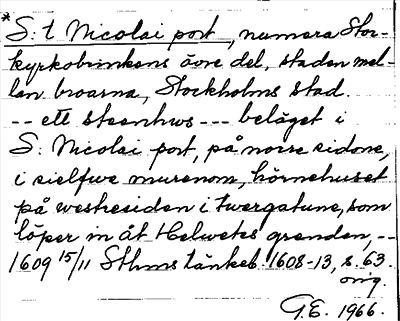 * S:t Nicolai port, numera Stor-
kyrkobrinkens övre del, staden mel-
lan broarna, Stockholms stad.
-- ett steenhws --- beläget i
S. Nicolai port, på norre sidone,
i sielfwe murenom, hörnehuset
på westresiden i twergatune, som
löper in åt Helwetes grenden, --
1609 15/11 Sthms tänkeb. 1608-13, s. 63.
orig.
G.E. 1966.